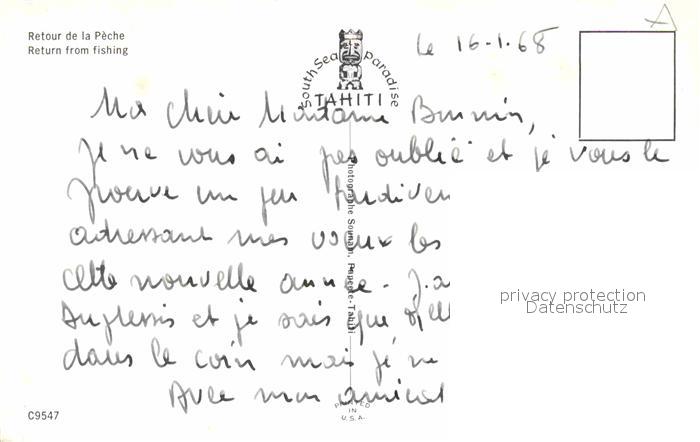 Retour de la Pèche
Return from fishing
le 16-1.68
South Sea Paradise
TAHITI
Ma chère Madame
je ne vous ai pas oublié et je vous le
prouve un peu
adressant mes voeux les
cette nouvelle année - J'a
et je sais que
dans le coin mais je ne
Avec mon amical
Photographe Sounam, Papeete-Tahiti
privacy protection
Datenschutz
C9547
PRINTED
IN
U.S.A.